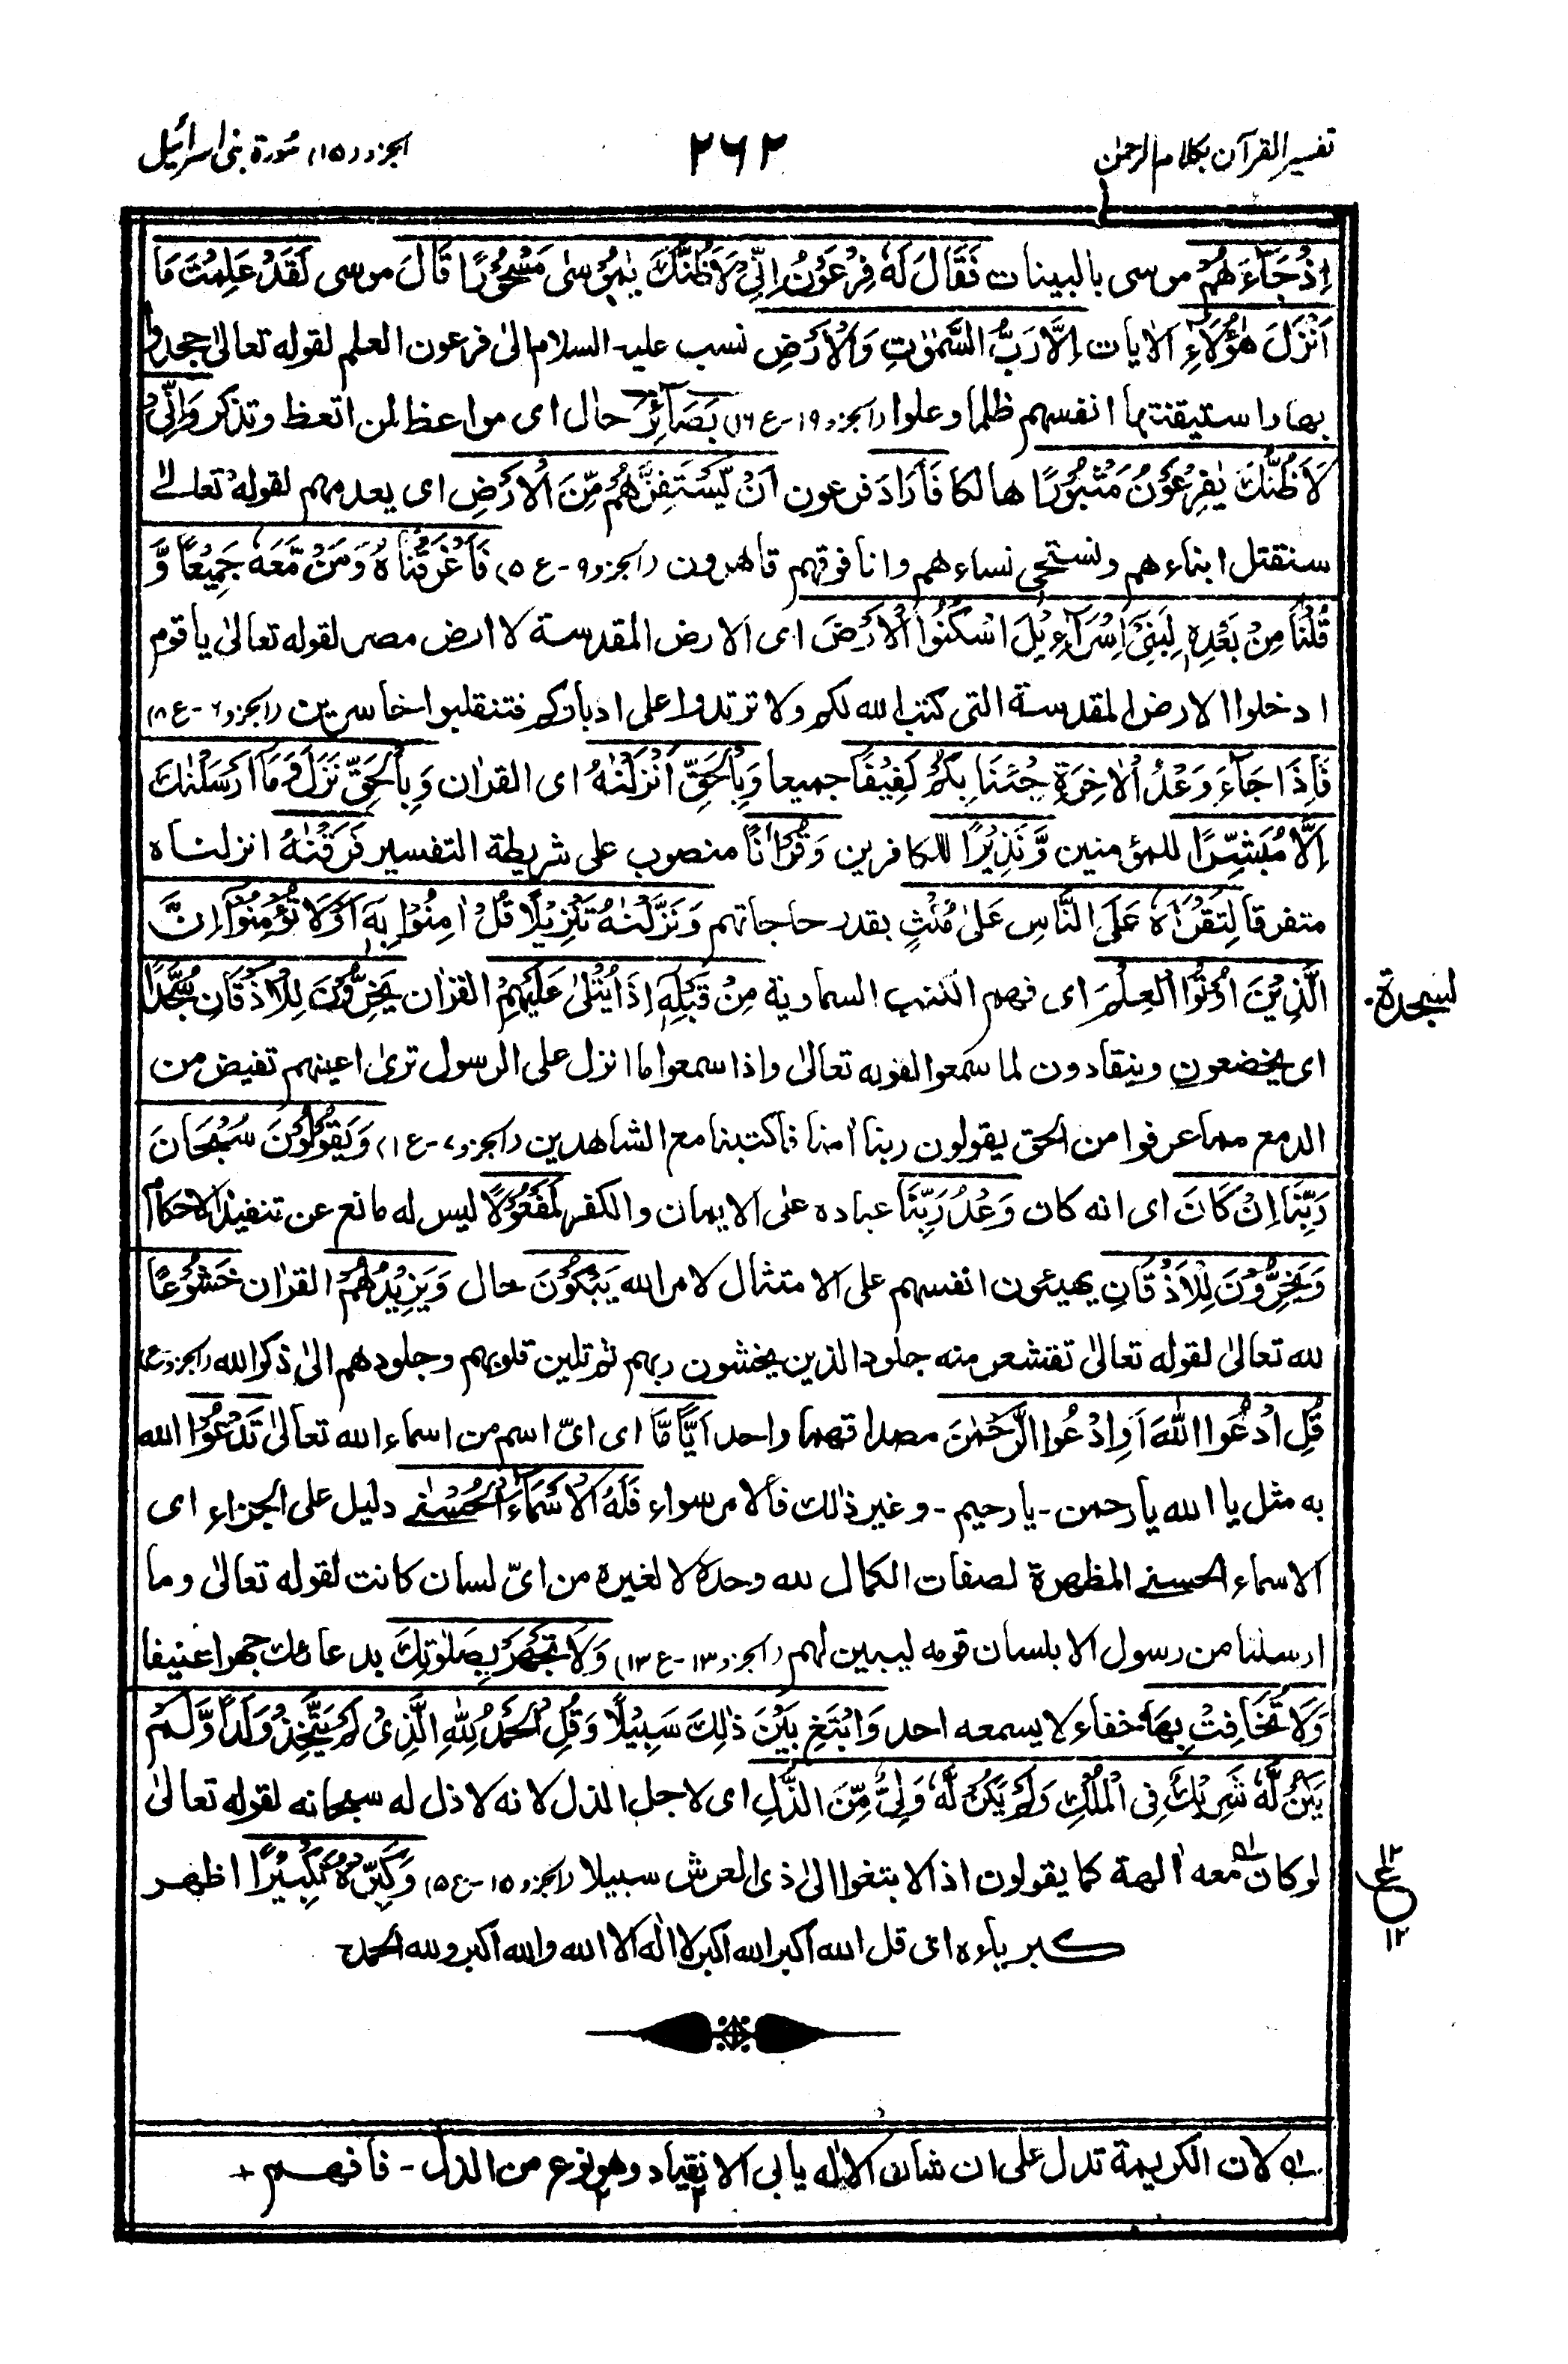 تفسير القرآن بكلام الرحمٰن
٢٦٢
الجزء (١٥) سُورة بنی اسرائيل
اِذْ جَآءَهُمْ موسى بالبينات فَقَالَ لَهٗ فِرْعَوْنُ اِنِّیْ لَاَظُنُّكَ يٰمُوْسٰى مَسْحُوْرًا قَالَ موسى لَقَدْ عَلِمْتَ مَا
اَنْزَلَ هٰٓؤُلَآءِ الاٰيات اِلَّا رَبُّ السَّمٰوٰتِ وَالْاَرْضِ نسب عليه السلام الىٰ فرعون العلم لقوله تعالىٰ جحدوا
بها واستيقنتها انفسهم ظلما وعلوا (الجزء ١٩-ع ١٦) بَصَآئِرَ حال اى مواعظ لمن اتعظ وتذكر وَاِنِّیْ
لَاَظُنُّكَ يٰفِرْعَوْنُ مَثْبُوْرًا هالكا فَاَرَادَ فرعون اَنْ يَّسْتَفِزَّهُمْ مِّنَ الْاَرْضِ اى يعدمهم لقوله تعالےٰ
سنقتل ابناءهم ونستحى نساءهم وانا فوقهم قاهرون (الجزء ٩-ع ٥) فَاَغْرَقْنَاهُ وَمَنْ مَّعَهٗ جَمِيْعًا وَّ
قُلْنَا مِنْ بَعْدِهٖ لِبَنِیْٓ اِسْرَآءِيْلَ اسْكُنُوا الْاَرْضَ اى الارض المقدسة لا ارض مصر لقوله تعالىٰ يا قوم
ادخلوا الارض المقدسة التى كتب الله لكم ولا ترتدوا على ادباركم فتنقلبوا خاسرين (الجزء ٦-ع ٨)
فَاِذَا جَآءَ وَعْدُ الْاٰخِرَةِ جِئْنَا بِكُمْ لَفِيْفًا جميعا وَبِالْحَقِّ اَنْزَلْنٰهُ اى القراٰن وَبِالْحَقِّ نَزَلَ وَمَآ اَرْسَلْنٰكَ
اِلَّا مُبَشِّرًا للمؤمنين وَّنَذِيْرًا للكافرين وَقُرْاٰنًا منصوب على شريطة التفسير فَرَقْنٰهُ انزلناه
متفرقا لِتَقْرَاَهٗ عَلَى النَّاسِ عَلىٰ مُكْثٍ بقدر حاجاتهم وَنَزَّلْنٰهُ تَنْزِيْلًا قُلْ اٰمِنُوْا بِهٖٓ اَوْ لَا تُؤْمِنُوْٓا اِنَّ
الَّذِيْنَ اُوْتُوا الْعِلْمَ اى فهم الكتب السماوية مِنْ قَبْلِهٖٓ اِذَا يُتْلىٰ عَلَيْهِمْ القراٰن يَخِرُّوْنَ لِلْاَذْقَانِ سُجَّدًا
السجدة
اى يخضعون وينقادون لما سمعوا لقوله تعالىٰ واذا سمعوا ما انزل على الرسول ترىٰ اعينهم تفيض من
الدمع مما عرفوا من الحق يقولون ربنا اٰمنا فاكتبنا مع الشاهدين (الجزء ٧-ع ١) وَيَقُوْلُوْنَ سُبْحَانَ
رَبِّنَآ اِنْ كَانَ اى انه كان وَعْدُ رَبِّنَا عباده على الايمان والكفر لَمَفْعُوْلًا ليس له مانع عن تنفيذ الاحكام
وَيَخِرُّوْنَ لِلْاَذْقَانِ يهيئون انفسهم على الامتثال لامر الله يَبْكُوْنَ حال وَيَزِيْدُهُمْ القراٰن خُشُوْعًا
لله تعالىٰ لقوله تعالىٰ تقشعر منه جلود الذين يخشون ربهم ثم تلين قلوبهم وجلودهم الىٰ ذكر الله
قُلِ ادْعُوا اللّٰهَ اَوِ ادْعُوا الرَّحْمٰنَ مصداقهما واحد اَيًّا مَّا اى اىّ اسم من اسماء الله تعالىٰ تَدْعُوْا الله
به مثل يا الله يا رحمن - يا رحيم - وغير ذٰلك فالامر سواء فَلَهُ الْاَسْمَآءُ الْحُسْنٰے دليل على الجزاء اى
الاسماء الحسنے المظهرة لصفات الكمال لله وحده لا لغيره من اىّ لسان كانت لقوله تعالىٰ وما
ارسلنا من رسول الا بلسان قومه ليبين لهم (الجزء ١٣-ع ١٣) وَلَا تَجْهَرْ بِصَلٰوتِكَ بدعائك جهرا عنيفا
وَلَا تُخَافِتْ بِهَا خفاء لا يسمعه احد وَابْتَغِ بَيْنَ ذٰلِكَ سَبِيْلًا وَقُلِ الْحَمْدُ لِلّٰهِ الَّذِیْ لَمْ يَتَّخِذْ وَلَدًا وَّلَمْ
يَكُنْ لَّهٗ شَرِيْكٌ فِى الْمُلْكِ وَلَمْ يَكُنْ لَّهٗ وَلِیٌّ مِّنَ الذُّلِّ اى لاجل الذل لانه لا ذل له سبحانه لقوله تعالىٰ
لو كان معه اٰلهة كما يقولون اذا لابتغوا الىٰ ذى العرش سبيلا (الجزء ١٥-ع ٥) وَكَبِّرْهُ تَكْبِيْرًا اظهر
١٢
ع
١٢
كبرياءه اى قل الله اكبر الله اكبر لا الٰه الا الله والله اكبر ولله الحمد
لان الكريمة تدل على ان شان الالٰه يابى الانقياد وهو نوع من الذل - فافهم +